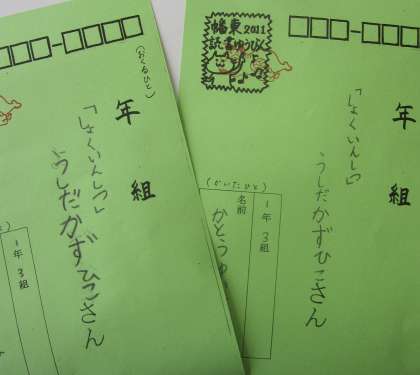 (おくるひと)
年
組
「しょくいんしつ」
うしだかずひこさん
1年3組
幡東2011
読書ゆうびん
年
組
「しょくいんしつ」
うしだかずひこさん
(かいたひと)
1年3組
名前
かとうゆ